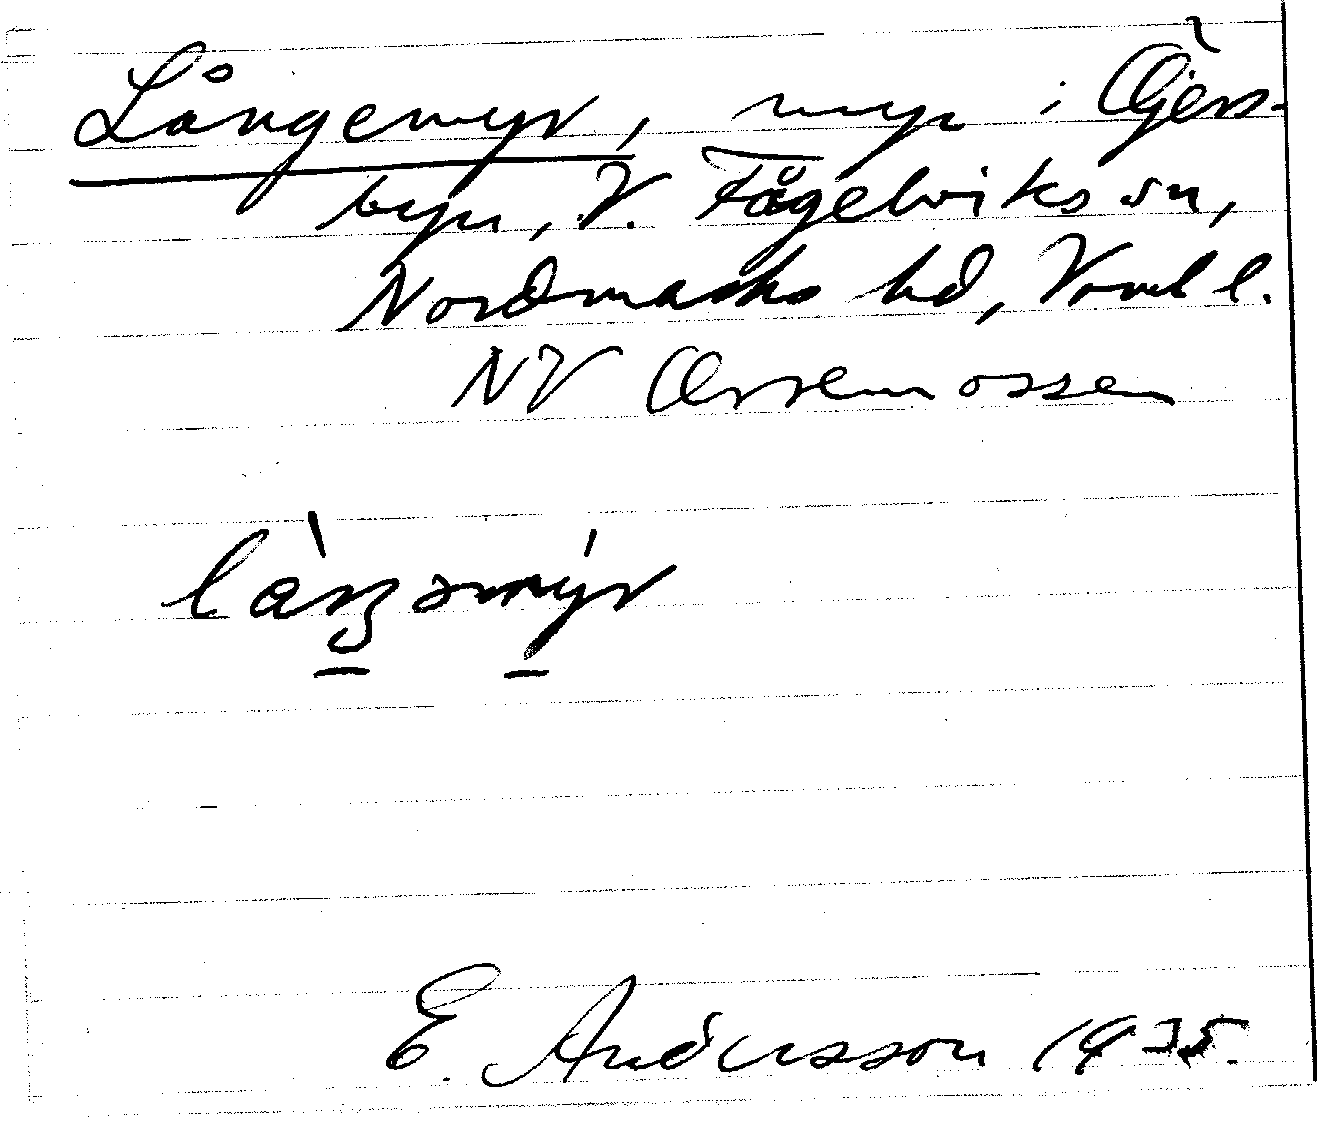 Långemyr, myr i Öjers-
byn, V. Fågelviks sn,
Nordmarks hd, Vrml l.
NV Orremossen
E. Andersson 1935.